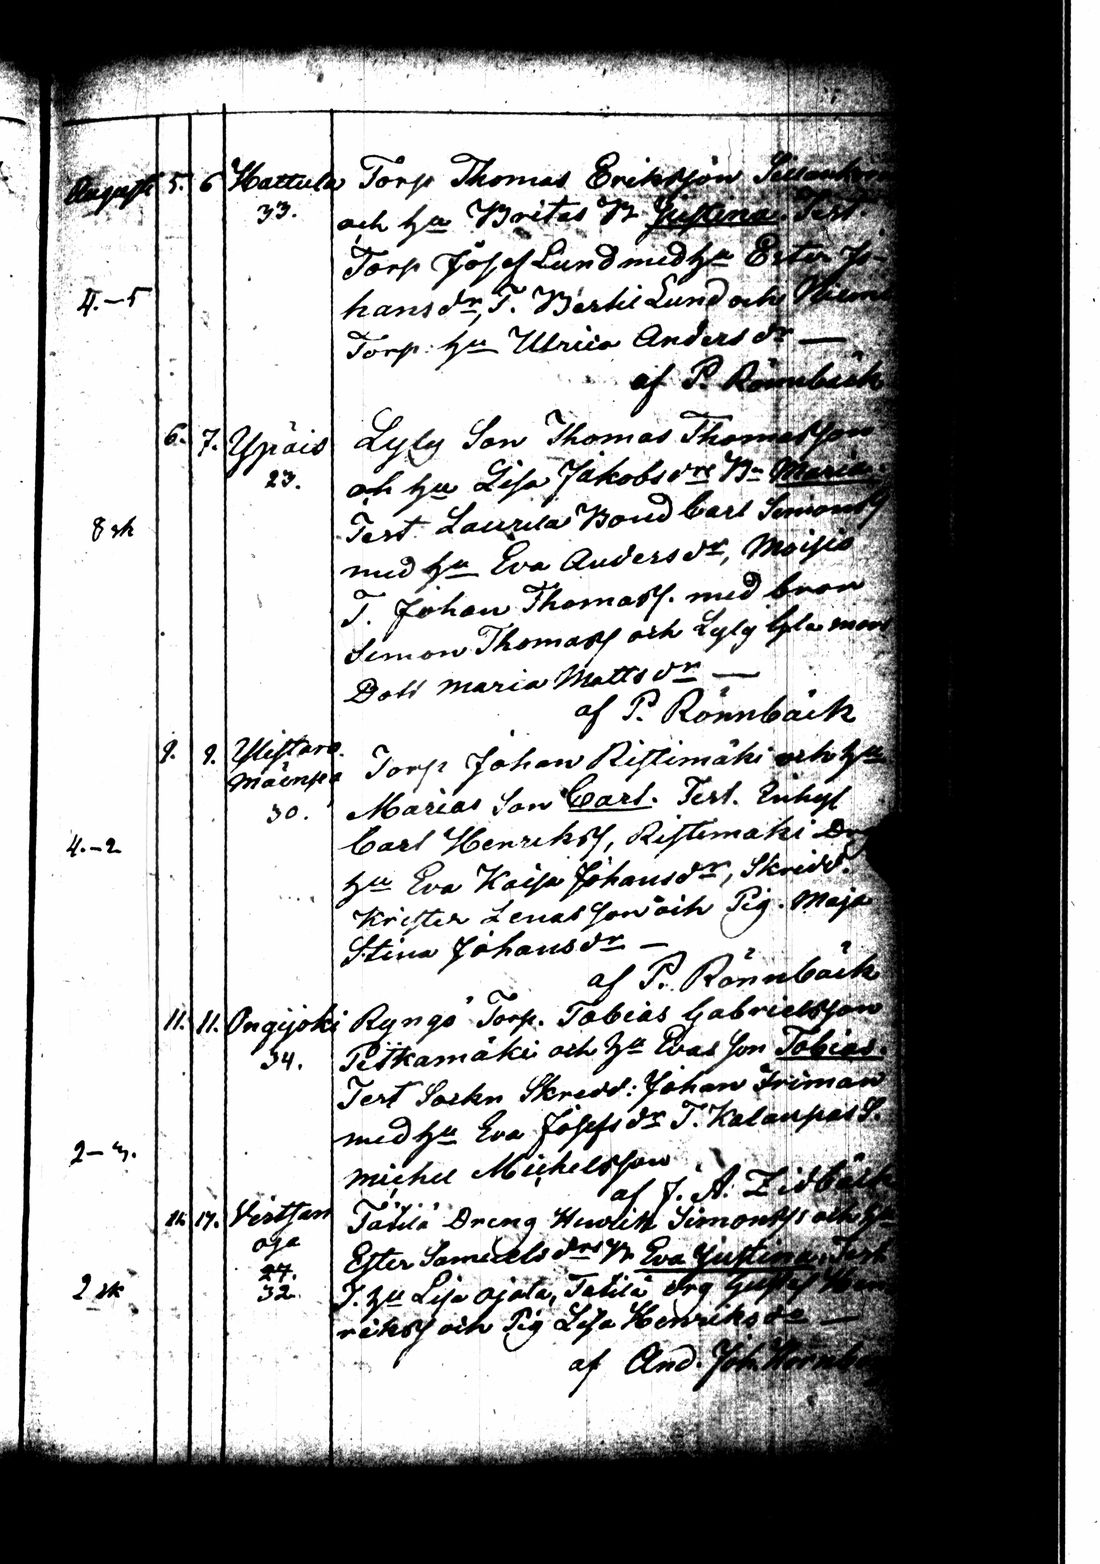 August 5. 6 Hattula Torp Thomas Eriksson
33. och hu Britas B. Justina. Test.
Torp Josef Lund med hu Ester Jo-
4.-5 hansdr, T. Bertil Lund och
Torp hu Ulrica Andersdr —
af P. Rönnback
6. 7. Ypäis Lyly Son Thomas Thomasson
23. och hu Lisa Jakobsdrs Bn Maria.
8 sk Test Laurila Bond Carl Simonss
med hu Eva Andersdr, Moisio
T. Johan Thomass. med bror
Simon Thomass och Lyly Gla mans
Dott Maria Mattsdr —
af P. Rönnbäck
9. 9. Ylistaro Torp Johan Ristimäki och hu
Mäenpä Marias Son Carl. Test. Inhys
30. Carl Henrikss, Ristimäki Drg
4.-2 hu Eva Kaisa Johansdr, Skredd.
Krister Lenasson och Pig. Maja
Stina Johansdr —
af P. Rönnbäck
11. 11. Ongijoki Ryngö Torp. Tobias Gabrielsson
34. Pitkamäki och hu Evas son Tobias.
Test Sockn Skredd: Johan Friman
med hu Eva Josefsdr T. Kalaupas S.
2-3. Michel Michelsson
af J. A. Zidbäck
17. Virtsan Tätilä Dreng Henrik Simonss och hu
oja Ester Samuelsdrs B Eva Justina. Test
27. T. hu Lisa Ojala, Tätilä drg Gustaf Hen
2 sk 32. rikss och Pig Lisa Henriksdr —
af And. Joh. Hörnberg